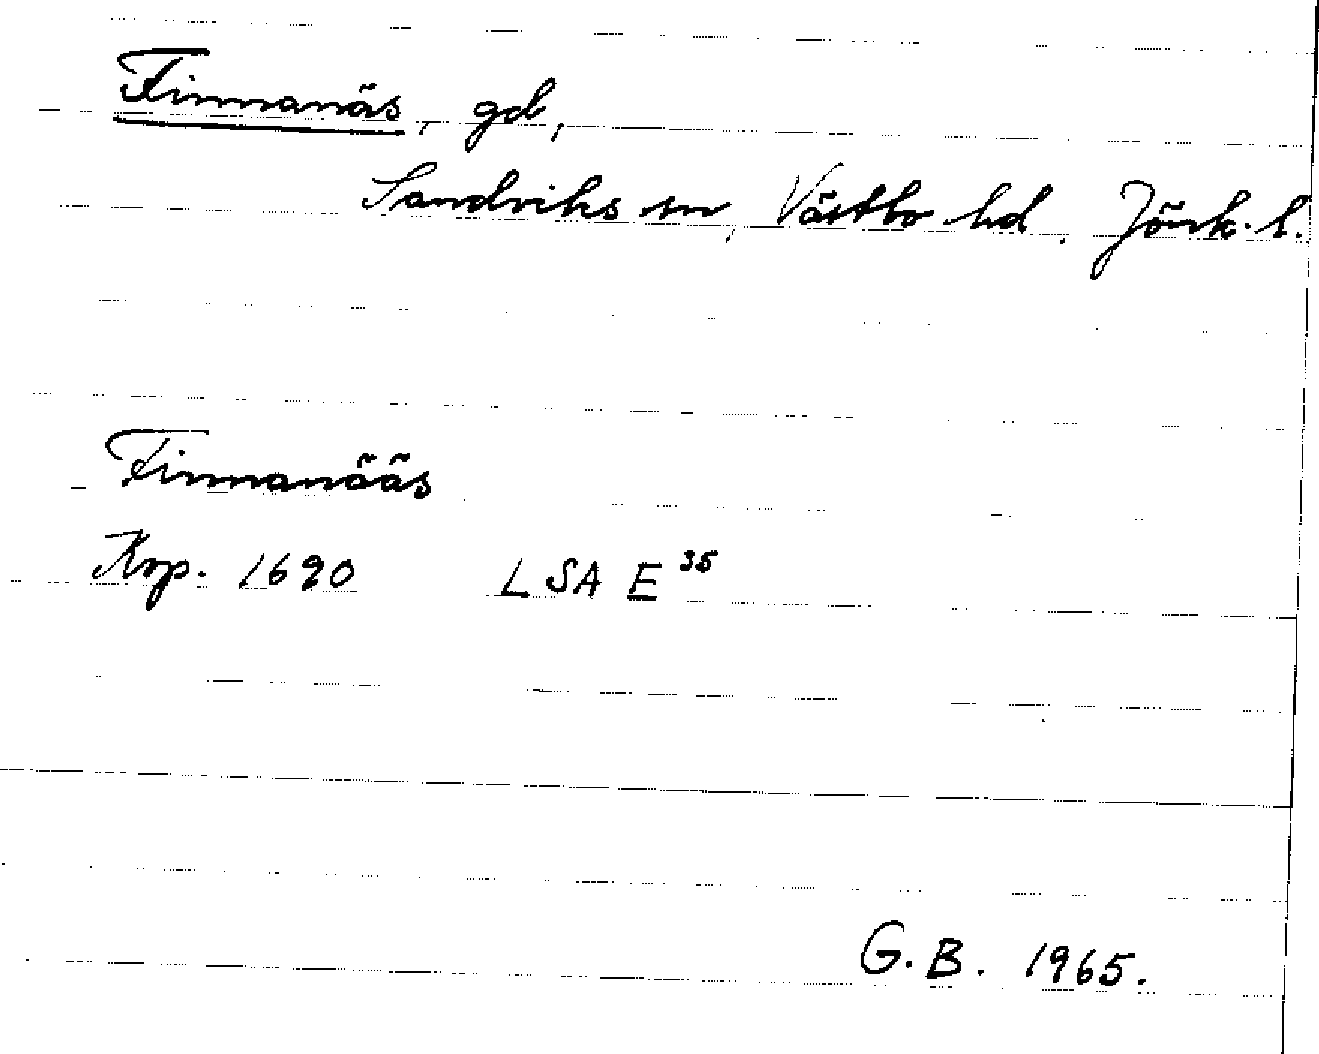 Finnanäs, gd,
Sandviks sn, Västbo hd. Jönk. l.
Finnanääs
Kop. 1690 LSA E 35
G.B. 1965.